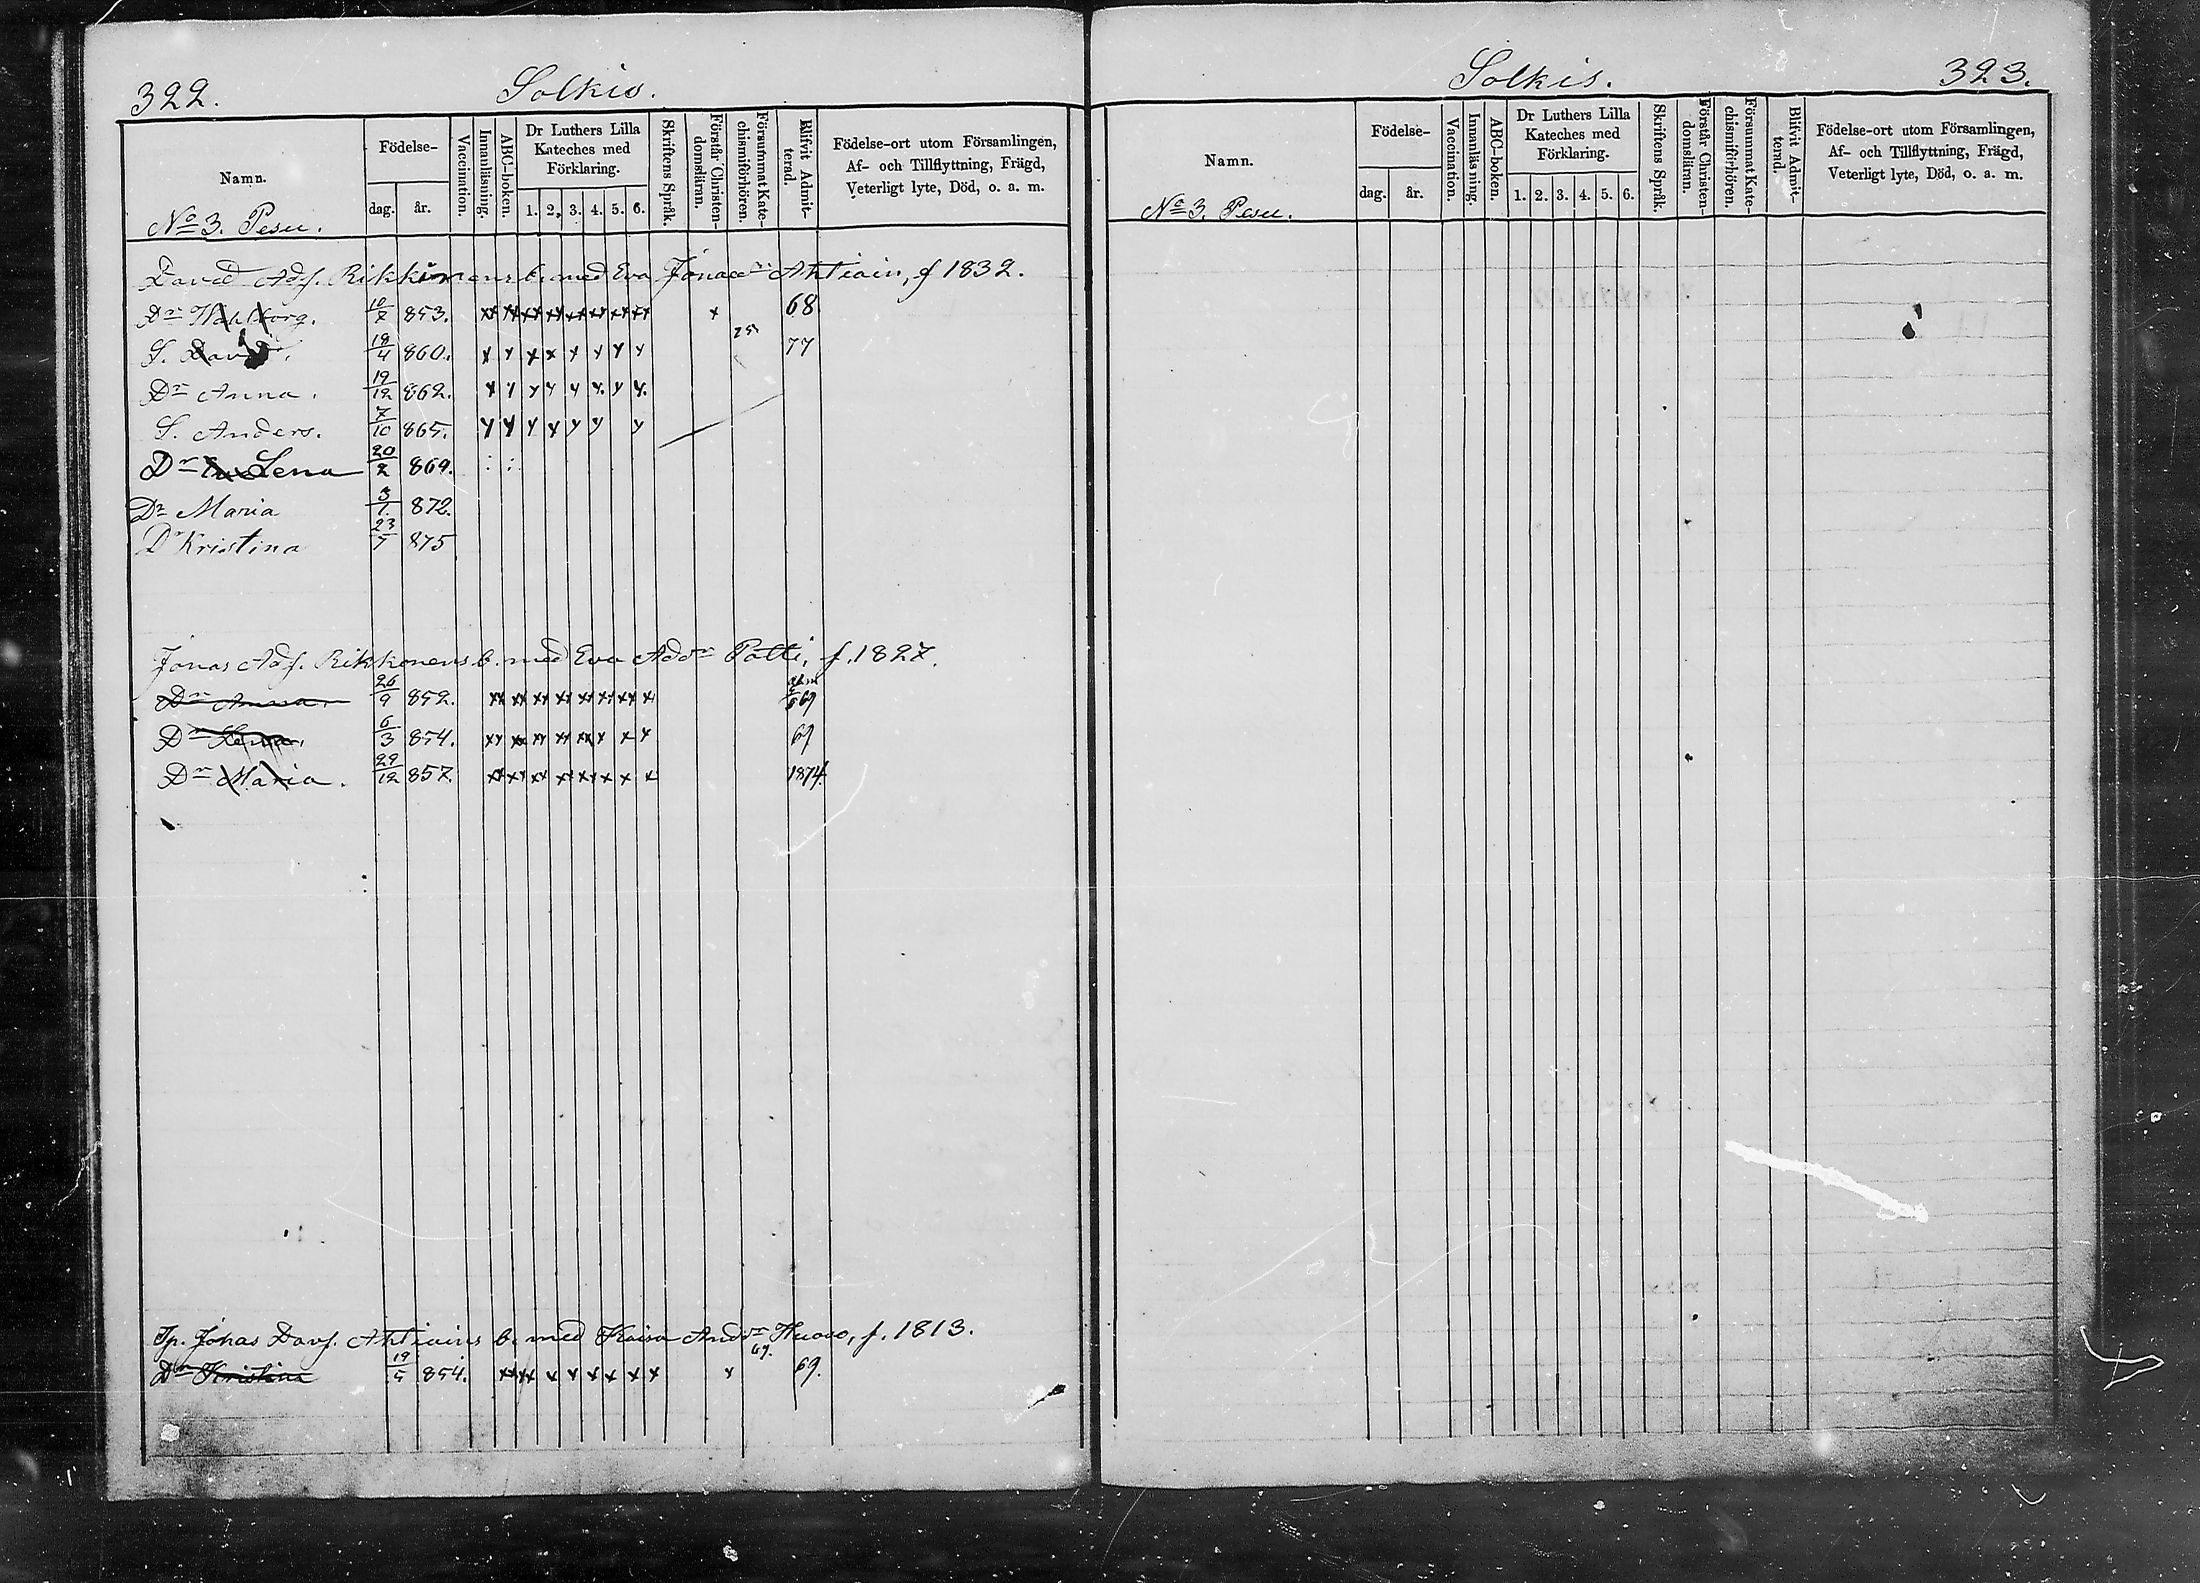 322.
Solkis.
Namn.
Födelse-
dag.
år.
Vaccination.
Innanläsning.
ABC-boken.
Dr Luthers Lilla
Kateches med
Förklaring.
1. 2. 3. 4. 5. 6.
Skriftens Språk.
Förstår Christen-
domsläran.
Försummat Kate-
chismiförhören.
Blifvit Admit-
terad.
Födelse-ort utom Församlingen,
Af- och Tillflyttning, Frägd,
Veterligt lyte, Död, o. a. m.
No 3. Pesu.
David Adf. Rikkonens b. med Eva Jonae Ahtiain, f 1832.
Dr Wahlborg. 10/7 853. xx xx xx xx xx xx xx xx x 68
S. David. 18/4 860. x x x x x x x x 77
Dr Anna. 19/12 862. x x x x x x x x
S. Anders. 7/10 865. x x x x x x x
Dr Lena 20/2 869. : :
Dr Maria 3/1. 872.
Dr Kristina 23/5 875
Jonas Adf. Rikkonens b. med Eva Addr Potti, f. 1827.
Dr Anna. 26/9 852. xx xx xx xx xx xx xx x 69
Dr Lena. 6/3 854. xx xx xx xx xx x x x 69
Dr Maria. 29/12 857. xx xx xx xx xx x x x 1874.
Tp. Jonas Davf. Ahtiains b. med Kaisa Anddr Huovo, f. 1813.
69.
Dr Kristina 19/5 854. xx xx x x x x x x x 69.
Solkis.
323.
Namn.
Födelse-
dag.
år.
Vaccination.
Innanläsning.
ABC-boken.
Dr Luthers Lilla
Kateches med
Förklaring.
1. 2. 3. 4. 5. 6.
Skriftens Språk.
Förstår Christen-
domsläran.
Försummat Kate-
chismiförhören.
Blifvit Admit-
terad.
Födelse-ort utom Församlingen,
Af- och Tillflyttning, Frägd,
Veterligt lyte, Död, o. a. m.
No 3. Pesu.